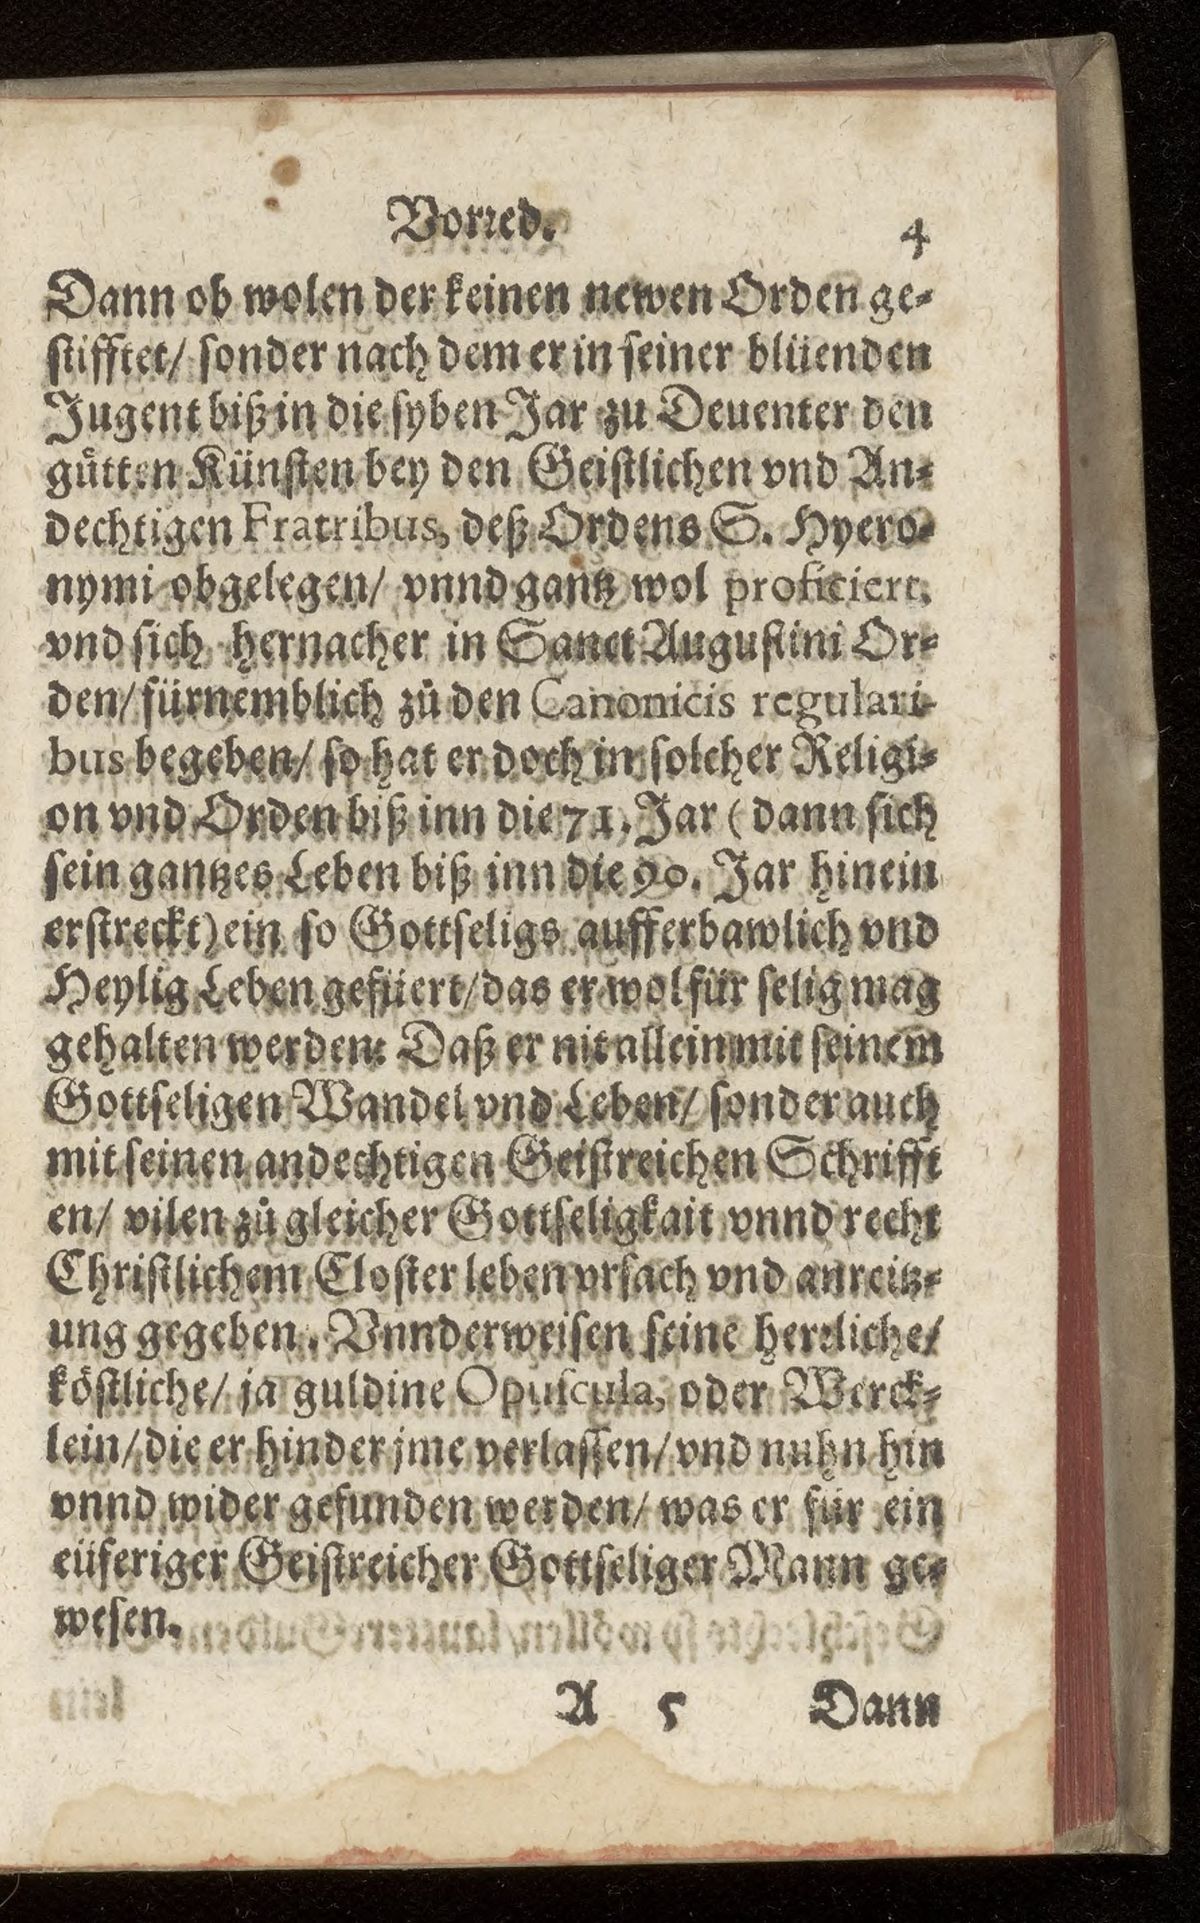 Vorred.
4
Dann ob wolen der keinen newen Orden ge-
stifftet/ sonder nach dem er in seiner blüenden
Jugent biß in die syben Jar zu Deuenter den
gůtten Künsten bey den Geistlichen vnd An-
dechtigen Fratribus, deß Ordens S. Hyero-
nymi obgelegen/ vnnd gantz wol proficiert,
vnd sich hernacher in Sanct Augustini Or-
den/ fürnemblich zů den Canonicis regulari-
bus begeben/ so hat er doch in solcher Religi-
on vnd Orden biß inn die 71. Jar (dann sich
sein gantzes Leben biß inn die 90. Jar hinein
erstreckt) ein so Gottseligs aufferbawlich vnd
Heylig Leben gefüert/ das er wol für selig mag
gehalten werden: Daß er nit allein mit seinem
Gottseligen Wandel vnd Leben/ sonder auch
mit seinen andechtigen Geistreichen Schrifft
en/ vilen zů gleicher Gottseligkait vnnd recht
Christlichem Closter leben vrsach vnd anreitz-
ung gegeben. Vnnd erweisen seine herrliche/
köstliche/ ja guldine Opuscula, oder Werck-
lein/ die er hinder jme verlassen/ vnd nuhn hin
vnnd wider gefunden werden/ was er für ein
eüferiger Geistreicher Gottseliger Mann ge-
wesen.
A 5 Dann